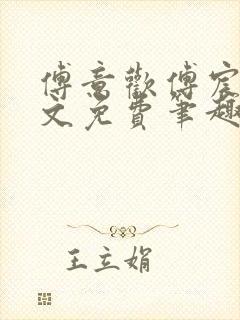 傅意歡傅宸
文免費筆趣
王立娟